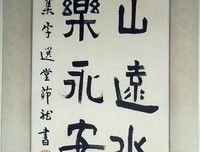 山遠水
樂永安
集字選堂節書